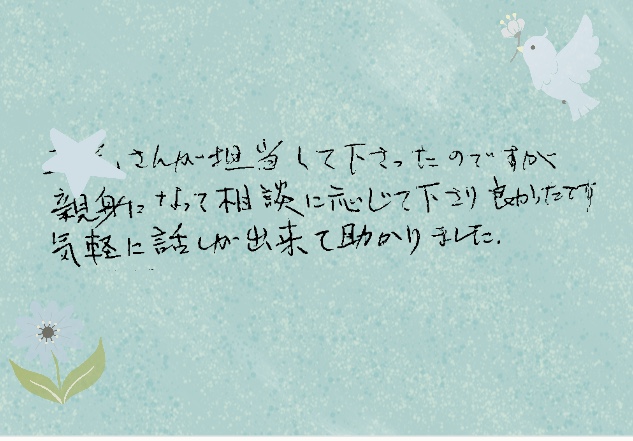 さんが担当して下さったのですが
親身になって相談に応じて下さり良かったです
気軽に話しが出来て助かりました.